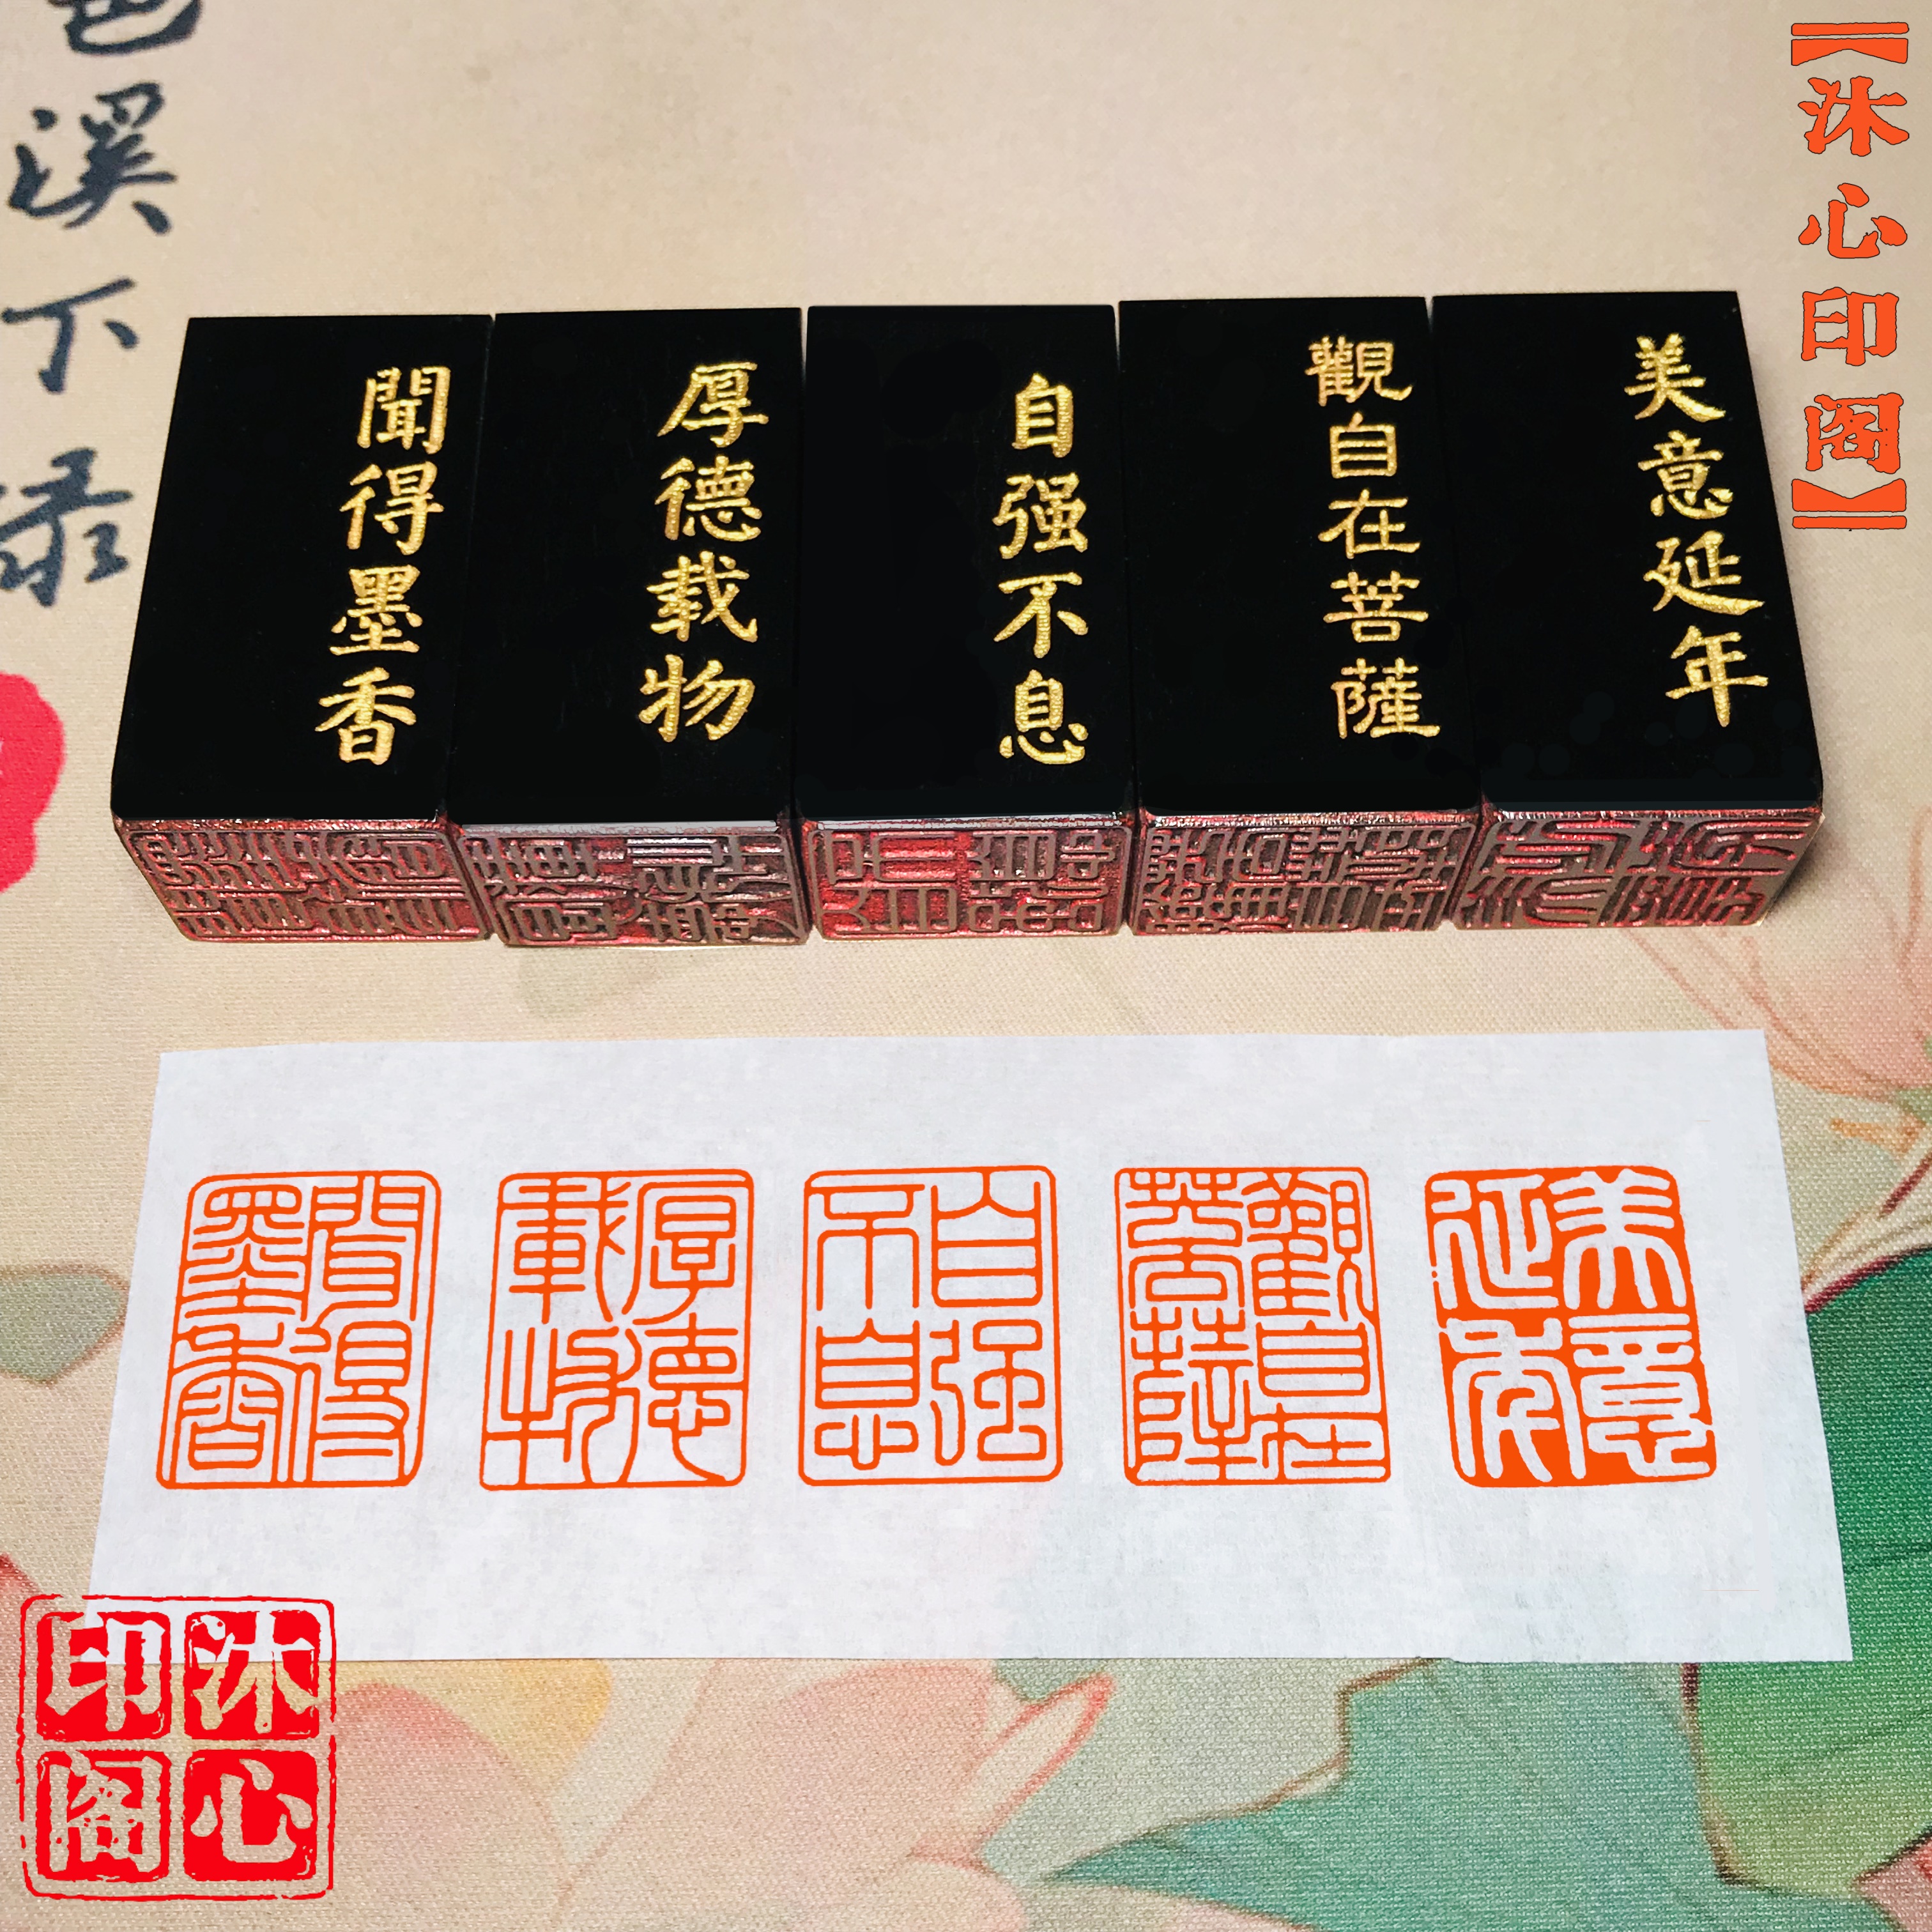 【沐心印阁】
溪下录
聞得墨香
厚德载物
自强不息
觀自在菩薩
美意延年
聞得墨香
厚德載物
自强不息
觀自在菩薩
美意延年
沐心印阁